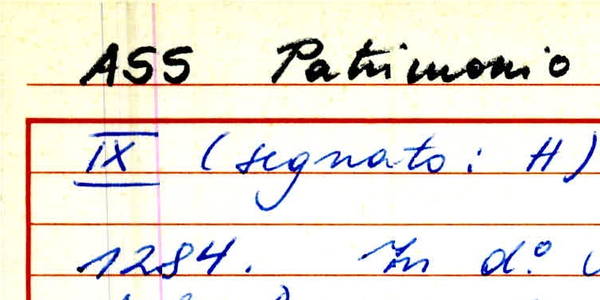 ASS Patrimonio
IX (segnato: H)
1284. In d.º